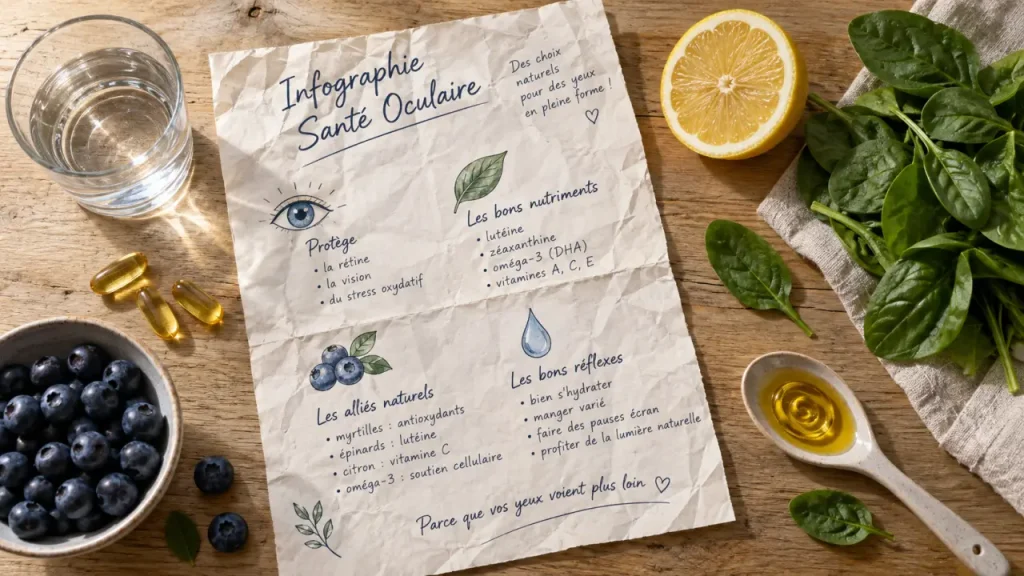 Infographie
Santé Oculaire
Des choix
naturels
pour des yeux
en pleine forme !
Protège
• la rétine
• la vision
• du stress oxydatif
Les bons nutriments
• lutéine
• zéaxanthine
• oméga-3 (DHA)
• vitamines A, C, E
Les alliés naturels
• myrtilles : antioxydants
• épinards : lutéine
• citron : vitamine C
• oméga-3 : soutien cellulaire
Les bons réflexes
• bien s'hydrater
• manger varié
• faire des pauses écran
• profiter de la lumière naturelle
Parce que vos yeux voient plus loin